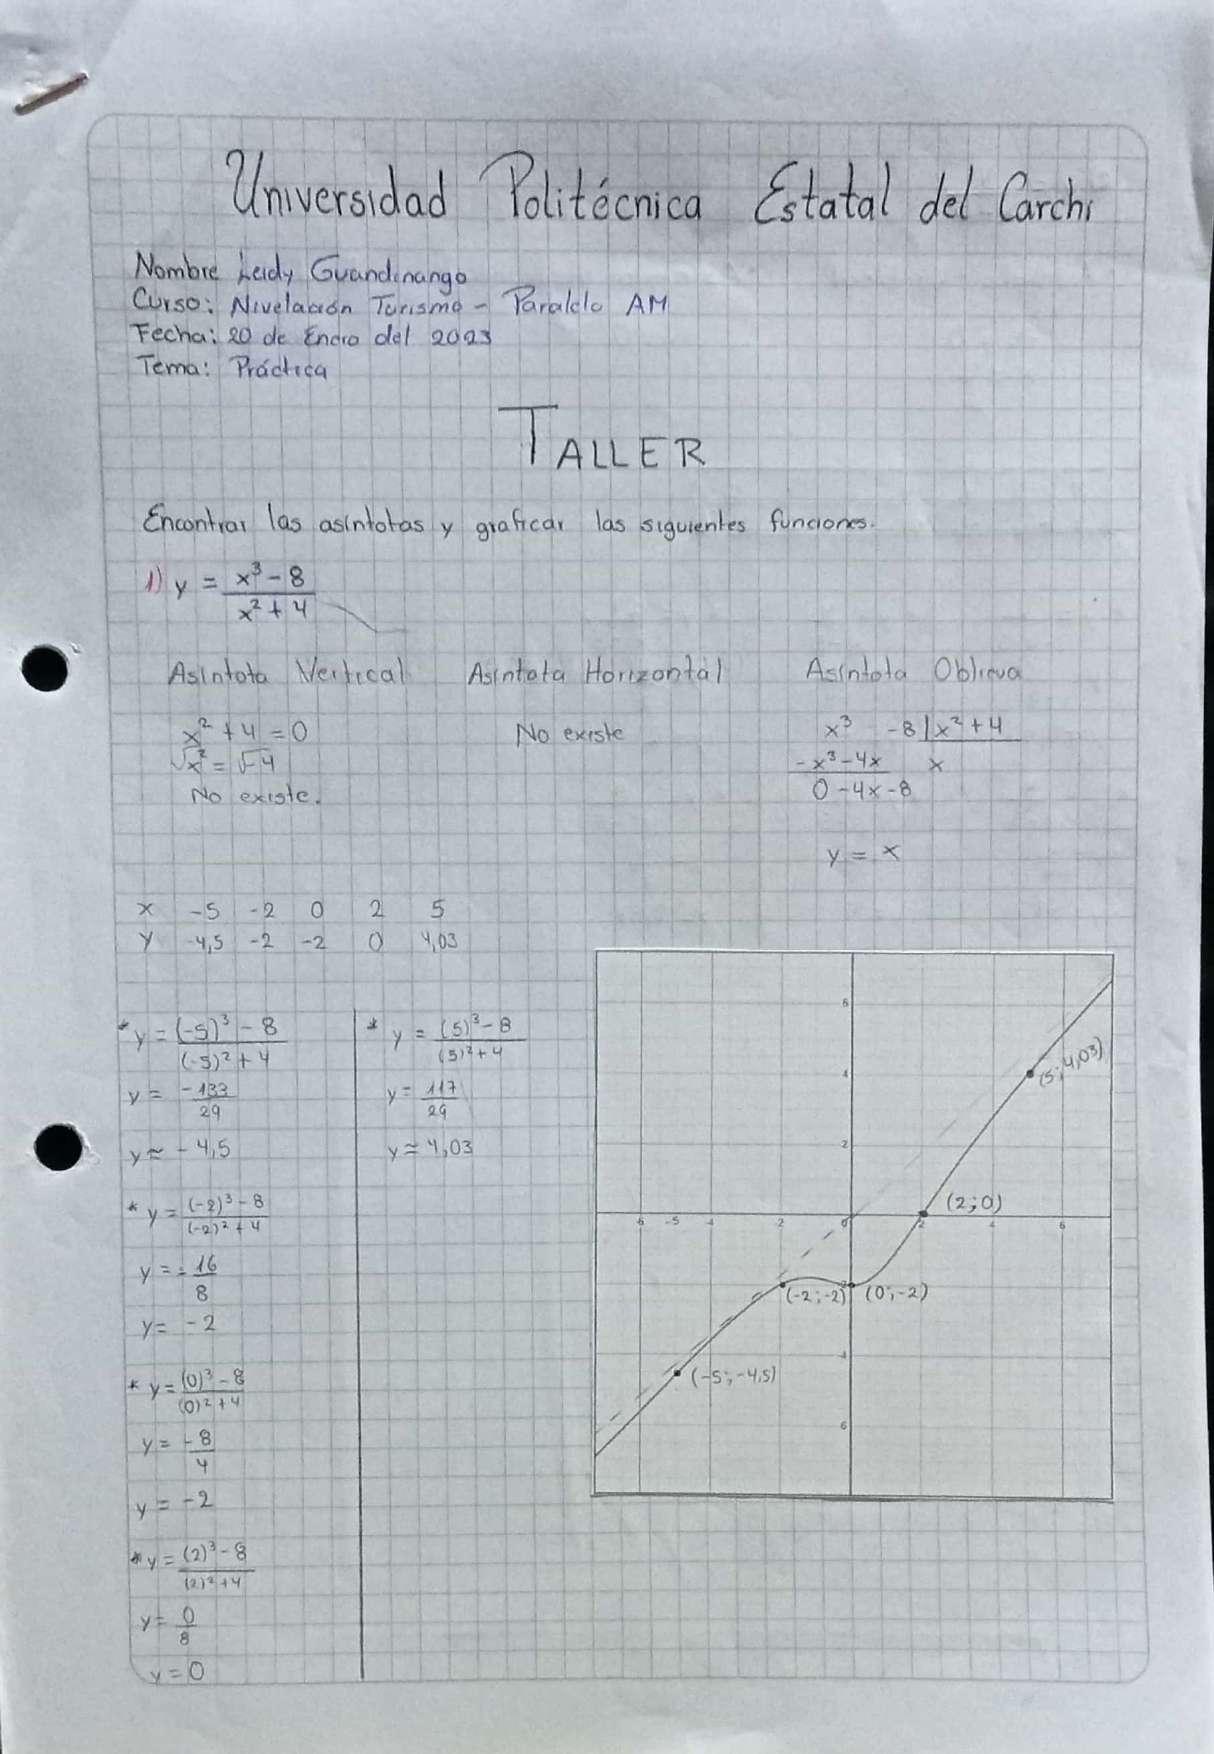 Universidad Politécnica Estatal del Carchi
Nombre Leidy Guandinango
Curso: Nivelación Turismo - Paralelo AM
Fecha: 20 de Enero del 2023
Tema: Práctica
TALLER
Encontrar las asíntotas y graficar las siguientes funciones.
1) y = x³ - 8 / x² + 4
Asíntota Vertical Asíntota Horizontal Asíntota Oblicua
x² + 4 = 0 No existe x³ -8 | x² + 4
√x² = √-4 -x³ - 4x x
No existe. 0 - 4x - 8
y = x
x -5 -2 0 2 5
y -4,5 -2 -2 0 4,03
* y = (-5)³ - 8 / (-5)² + 4
y = -133 / 29
y ≈ -4,5
* y = (-2)³ - 8 / (-2)² + 4
y = -16 / 8
y = -2
* y = (0)³ - 8 / (0)² + 4
y = -8 / 4
y = -2
* y = (2)³ - 8 / (2)² + 4
y = 0 / 8
y = 0
* y = (5)³ - 8 / (5)² + 4
y = 117 / 29
y ≈ 4,03
6
(5; 4,03)
4
2
(2; 0)
-6 -5 -4 -2 0 2 4 6
(-2; -2) (0; -2)
-4
(-5; -4,5)
6